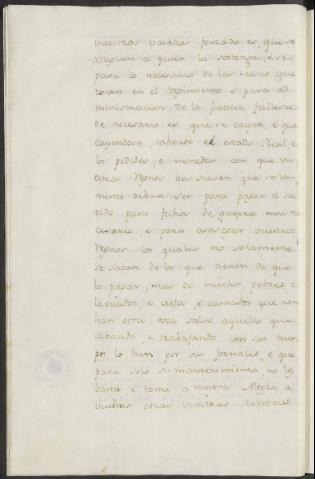 vuestros vasallos, forzado es, que se
alleguen a quien los sostenga, e si
para lo necesario de las cosas que
tocan en el Regimiento, e para ad-
ministracion de la Justicia fallesce
de necesario es que se cayan, e que
cayendose, caherse el estado Real, e
los pedidos, e monedas con que vu
estros Reynos vos sirven que sola-
mente debian ser para pagar el su
eldo para fecho de guerra muy ne
cesario, e para sosegar vuestros
Reynos los quales no solamente
se sacan de lo que tienen de que
lo pagar, mas de muchos pobres, e
lacerados, e viejos e cansados que non
han otra cosa salvo aquello que
cabando, e trabajando con sus cuer
pos lo han por sus jornales, e que
para solo su mantenimiento no les
basta e toma a vuestra Alteza, a
muchas otras vuestras rentas